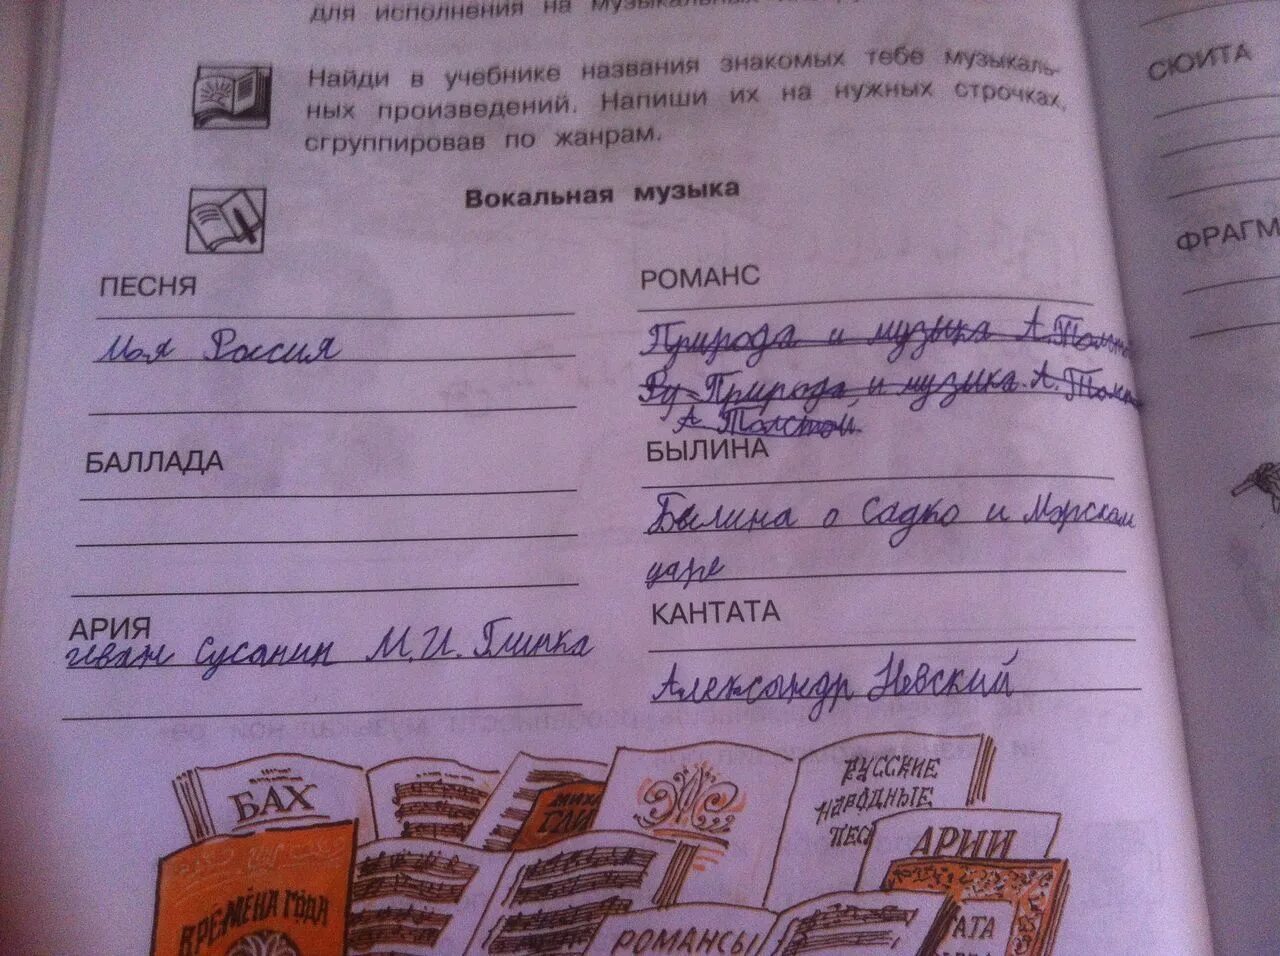 для исполнения на музыкальных
Найди в учебнике названия знакомых тебе музыкаль-
ных произведений. Напиши их на нужных строчках,
сгруппировав по жанрам.
Вокальная музыка
ПЕСНЯ
Моя Россия
БАЛЛАДА
АРИЯ
Иван Сусанин М.И. Глинка
РОМАНС
Природа и музыка А. Толст
Ру Природа и музыка. А. Толс
А Толстой
БЫЛИНА
Былина о Садко и Морском
царе
КАНТАТА
Александр Невский
СЮИТА
ФРАГМ
БАХ
ВРЕМЕНА ГОДА
МИХА
ГЛИ
РУССКИЕ
НАРОДНЫЕ
ПЕС
АРИИ
РОМАНСЫ
ТАТА